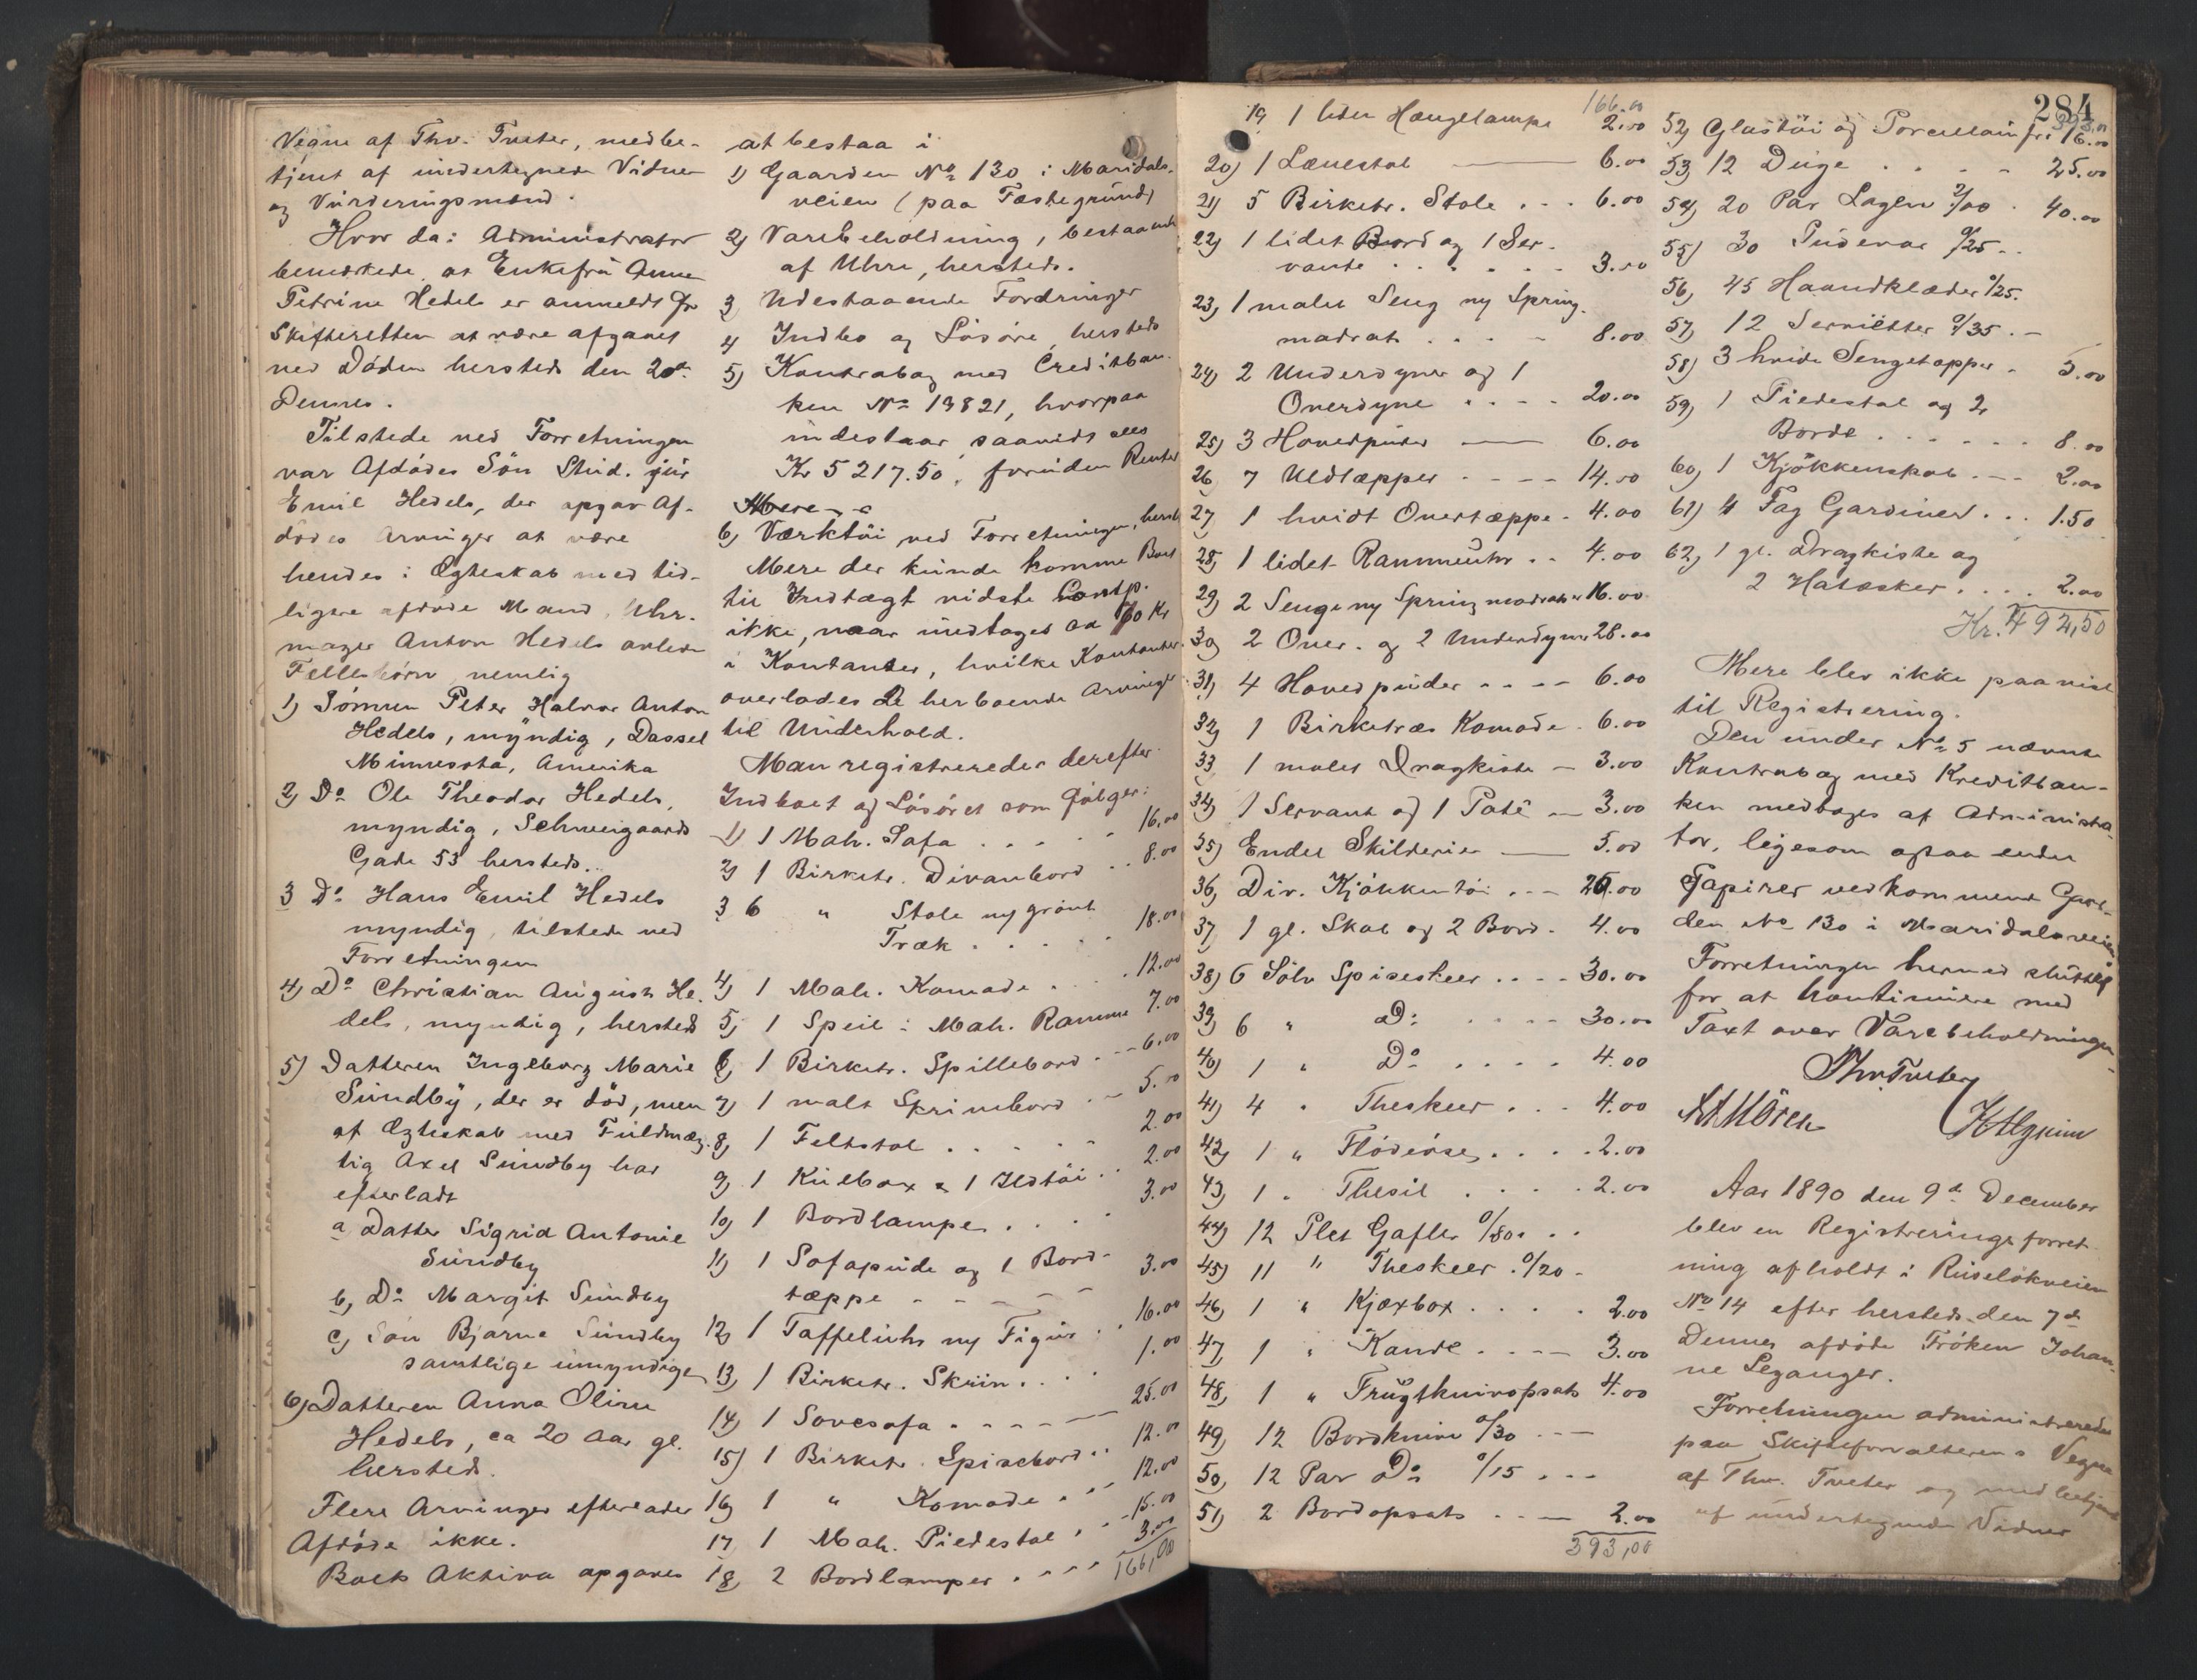 Vegne af Thv. Tveter, medbe-
tjent af undertegnede Vidner
og Vurderingsmænd.
Hvor da: Administrator
bemærkede, at Enkefru Anne
Petrine Hedels er anmeldt for
Skifteretten at være afgaaet
ved Døden hersteds den 20de
Dennes.
Tilstede ved Forretningen
var Afdødes Søn Stud. jur
Emil Hedels, der opgav Af-
dødes Arvinger at være
hendes i Ægteskab med tid-
ligere afdøde Mand, Uhr-
mager Anton Hedels avlede
Fellesbørn nemlig
1) Sønnen Peter Halvor Anton
Hedels, myndig, Dassel
Minnesota, Amerika
2) Do Ole Theodor Hedels,
myndig, Schweigaards
Gade 53 hersteds.
3 Do Hans Emil Hedels
myndig, tilstede ved
Forretningen
4) Do Christian August He-
dels, myndig, hersteds
5) Datteren Ingeborg Marie
Sundby, der er död, men
af Ægteskab med Fuldmæg-
tig Axel Sundby har
efterladt
a Datter Sigrid Antonie
Sundby
b, Do Margit Sundby
c, Søn Bjarne Sundby
samtlige umyndige
6) Datteren Anna Oline
Hedels, ca 20 Aar gl.
hersteds.
Flere Arvinger efterlader
Afdøde ikke.
Boets Aktiva opgaves
at bestaa i
1) Gaarden No 130 i Maridals-
veien (paa Fæstegrund)
2) Varebeholdning, bestaaende
af Uhre, hersteds.
3 Udestaaende Fordringer
4 Indbo og Løsøre, hersteds
5) Kontrabog med Creditban-
ken No 13821, hvorpaa
indestaar saavidt sees
Kr 5217.50, foruden Renter
Mere
6) Værktöi ved Forretningen, herst
Mere der kunde komme Boet
til Indtægt vidste Comp.
ikke, naar undtages ca 70 Kr
i Kontanter, hvilke Kontanter
overlodes de herboende Arvinger
til Underhold.
Man registrerede derefter
Indboet og Løsøret som følger:
1) 1 Mah. Sofa . . . . 16.00
2) 1 Birketr. Divanbord . . 8.00
3 6 " Stole ny grönt
Træk . . . . . 18.00
4) 1 Mah. Komode . . . 12.00
5, 1 Speil i Mah. Ramme 7.00
6, 1 Birketr. Spillebord . - - 6.00
7) 1 malt Skrivebord . - 5.00
8, 1 Feltstol . . . . - 2.00
9) 1 Kulbox & 1 Ildtöi . . 2.00
10) 1 Bordlampe . . . . 3.00
11) 1 Sofapude og 1 Bord-
tæppe - - - - - 3.00
12) 1 Taffeluhr ny Figur . . 16.00
13) 1 Birketr. Skrin . . . . 1.00
14) 1 Sovesofa . - - - - 25.00
15) 1 Birketr. Spisebord . . 12.00
16) 1 " Komode . . . 12.00
17 1 Mah. Piedestal . . . 15.00
18, 2 Bordlamper . . . . 3.00
166,00
284
166.00
19 1 liden Hængelampe 2.00
20) 1 Lænestol — 6.00
21) 5 Birketr. Stole . - . 6.00
22) 1 lidet Bord og 1 Ser-
vante . . . . . - 3.00
23, 1 malet Seng ny Spring-
madrats . . . - 8.00
24) 2 Underdyner og 1
Overdyne . . - - 20.00
25) 3 Hovedpuder — 6.00
26, 7 Uldtæpper - - - - 14.00
27 1 hvidt Overtæppe - 4.00
28, 1 lidet Rammeuhr . . 4.00
29, 2 Senge ny Springmadrats 16.00
30 2 Over- og 2 Underdyner 28.00
31, 4 Hovedpuder - - - - 6.00
32, 1 Birketræs Komode . 6.00
33 1 malet Dragkiste — 3.00
34, 1 Servant og 1 Potê — 3.00
35) Endel Skilderier — 5.00
36, Div. Kjökkentöi . - - 20.00
37, 1 gl. Skab og 2 Bord . 4.00
38) 6 Sölv Spiseskeer . . - - 30.00
39, 6 " Do . . - - 30.00
40) 1 " Do . . . . 4.00
41, 4 " Theskeer . . . 4.00
42, 1 " Flödeöse, . . . . 2.00
43, 1 " Thesil . . . . 2.00
44) 12 Plet Gafler 0/80 . . .
45) 11 " Theskeer . 0/20 -
46, 1 " Kjæxbox . . . . . 2.00
47, 1 " Kande . . - - - 3.00
48, 1 " Frugtknivopsats 4.00
49, 12 Bordknive 0/30 - - —
50, 12 Par Do 0/15 . - -
51, 2 Bordopsats . . - — 2.00
393,00
393.00
52, Glastöi og Porcellain for 16.00
53, 12 Duge . . . - - 25.00
54, 20 Par Lagen 2/00 . 40.00
55) 30 Pudevar 0/25 . .
56, 45 Haandklæder 0/25.
57, 12 Servietter 0/35 . —
58) 3 hvide Sengetæpper . 5.00
59, 1 Piedestal og 2
Borde . . . . . . 8.00
60, 1 Kjökkenskab . — 2.00
61) 4 Fag Gardiner . . . 1.50
62, 1 gl. Dragkiste og
2 Hatæsker . . . . 2.00
Kr. 492,50
Mere blev ikke paavist
til Registrering.
Den under No 5 nævnte
Kontrabog med Kreditban-
ken medtoges af Administra-
tor, ligesom ogsaa endel
Papirer vedkommende Gaar-
den No 130 i Maridalsveien
Forretningen hermed sluttet
for at kontinuere med
Taxt over Varebeholdningen
Thv Tveter
Aar 1890 den 9de December
blev en Registreringsforret-
ning afholdt i Ruselökveien
No 14 efter hersteds den 7de
Dennes afdöde Fröken Johan-
ne Leganger.
Forretningen administreredes
paa Skifteforvalterens Vegne
af Thv. Tveter og medbetjent
af undertegnede Vidner